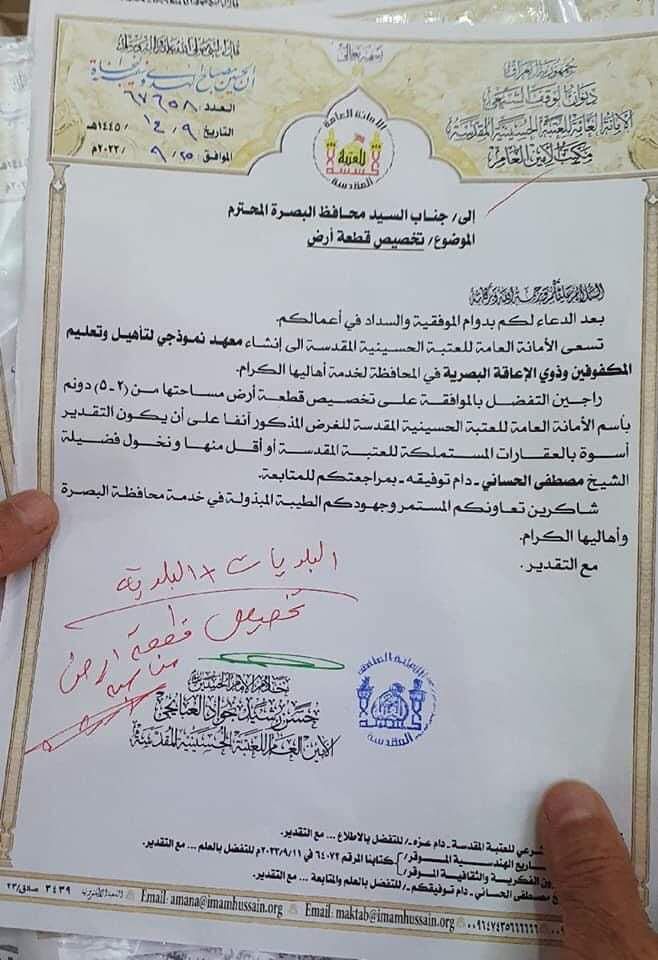 قال رسول الله صلى الله عليه وآله وسلم
إن الحسين مصباح الهدى وسفينة النجاة
بسمه تعالى
جمهورية العراق
ديوان الوقف الشيعي
الأمانة العامة للعتبة الحسينية المقدسة
مكتب الأمين العام
العدد: ٦٧٦٥٨
التاريخ: ٩ / / ١٤٤٥هـ
الموافق: ٢٥ / ٩ / ٢٠٢٣م
الأمانة العامة
للعتبة
المقدسة
إلى/ جناب السيد محافظ البصرة المحترم
الموضوع/ تخصيص قطعة أرض
السلام عليكم ورحمة الله وبركاته
بعد الدعاء لكم بدوام الموفقية والسداد في أعمالكم.
تسعى الأمانة العامة للعتبة الحسينية المقدسة الى إنشاء معهد نموذجي لتأهيل وتعليم
المكفوفين وذوي الإعاقة البصرية في المحافظة لخدمة أهاليها الكرام.
راجين التفضل بالموافقة على تخصيص قطعة أرض مساحتها من (٢-٥) دونم
بأسم الأمانة العامة للعتبة الحسينية المقدسة للغرض المذكور أنفا على أن يكون التقدير
أسوة بالعقارات المستملكة للعتبة المقدسة أو أقل منها و نخول فضيلة
الشيخ مصطفى الحساني ـ دام توفيقه ـ بمراجعتكم للمتابعة.
شاكرين تعاونكم المستمر وجهودكم الطيبة المبذولة في خدمة محافظة البصرة
وأهاليها الكرام.
مع التقدير .
البلديات + البلدية
تخصيص قطعة ارض
مناسبة
خادم الإمام الحسين
حسن رشيد جواد العبايجي
الأمين العام للعتبة الحسينية المقدسة
الأمانة العامة
المقدسة
شرعي للعتبة المقدسة ـ دام عزه ـ/ للتفضل بالاطلاع ... مع التقدير.
اريع الهندسية الموقر/
ون الفكرية والثقافية الموقر/ كتابنا المرقم ٦٤٠٧٢ في ٢٠٢٣/٩/١١م للتفضل بالعلم ... مع التقدير.
مصطفى الحساني ـ دام توفيقكم ـ/ للتفضل بالعلم والمتابعة ... مع التقدير.
٣٤٣٩ صادق/٢٣ Email: amana@imamhussain.org Email: maktab@imamhussain.org